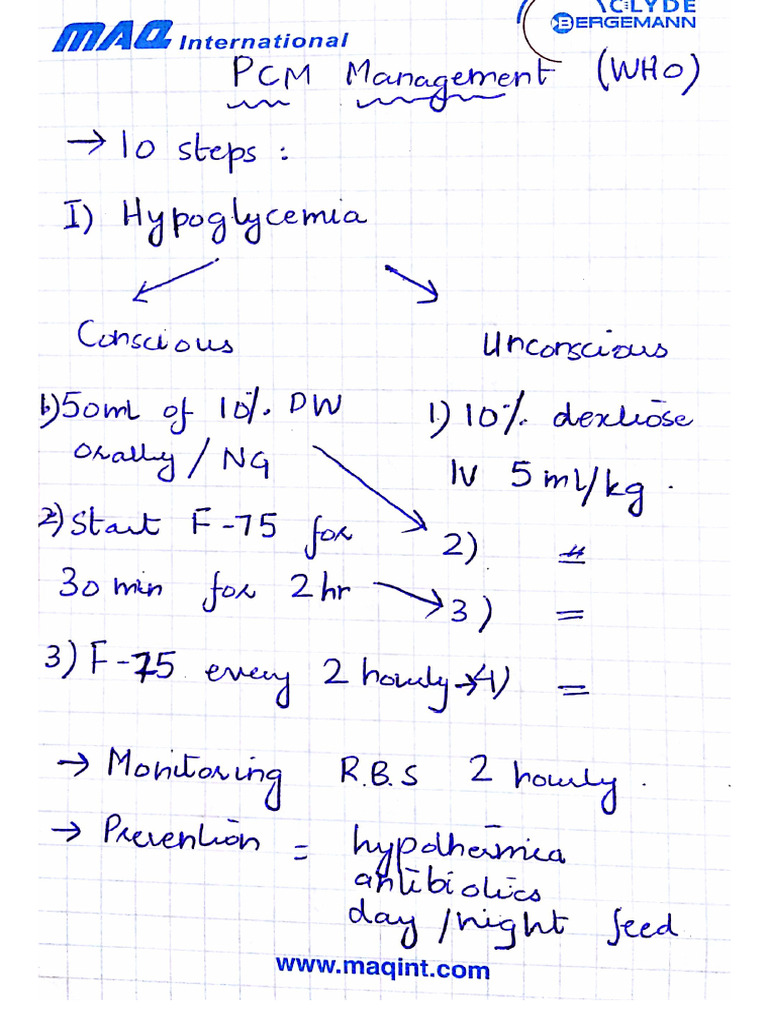 MAQ International
CLYDE
BERGEMANN
PCM Management (WHO)
→ 10 steps :
I) Hypoglycemia
Conscious
Unconscious
1) 50ml of 10% DW
orally / NG
1) 10% dextrose
IV 5 ml/kg .
2) Start F-75 for
30 min for 2 hr
2) "
3) =
3) F-75 every 2 hourly → 4) =
→ Monitoring R.B.S 2 hourly .
→ Prevention = hypothermia
antibiotics
day / night feed
www.maqint.com